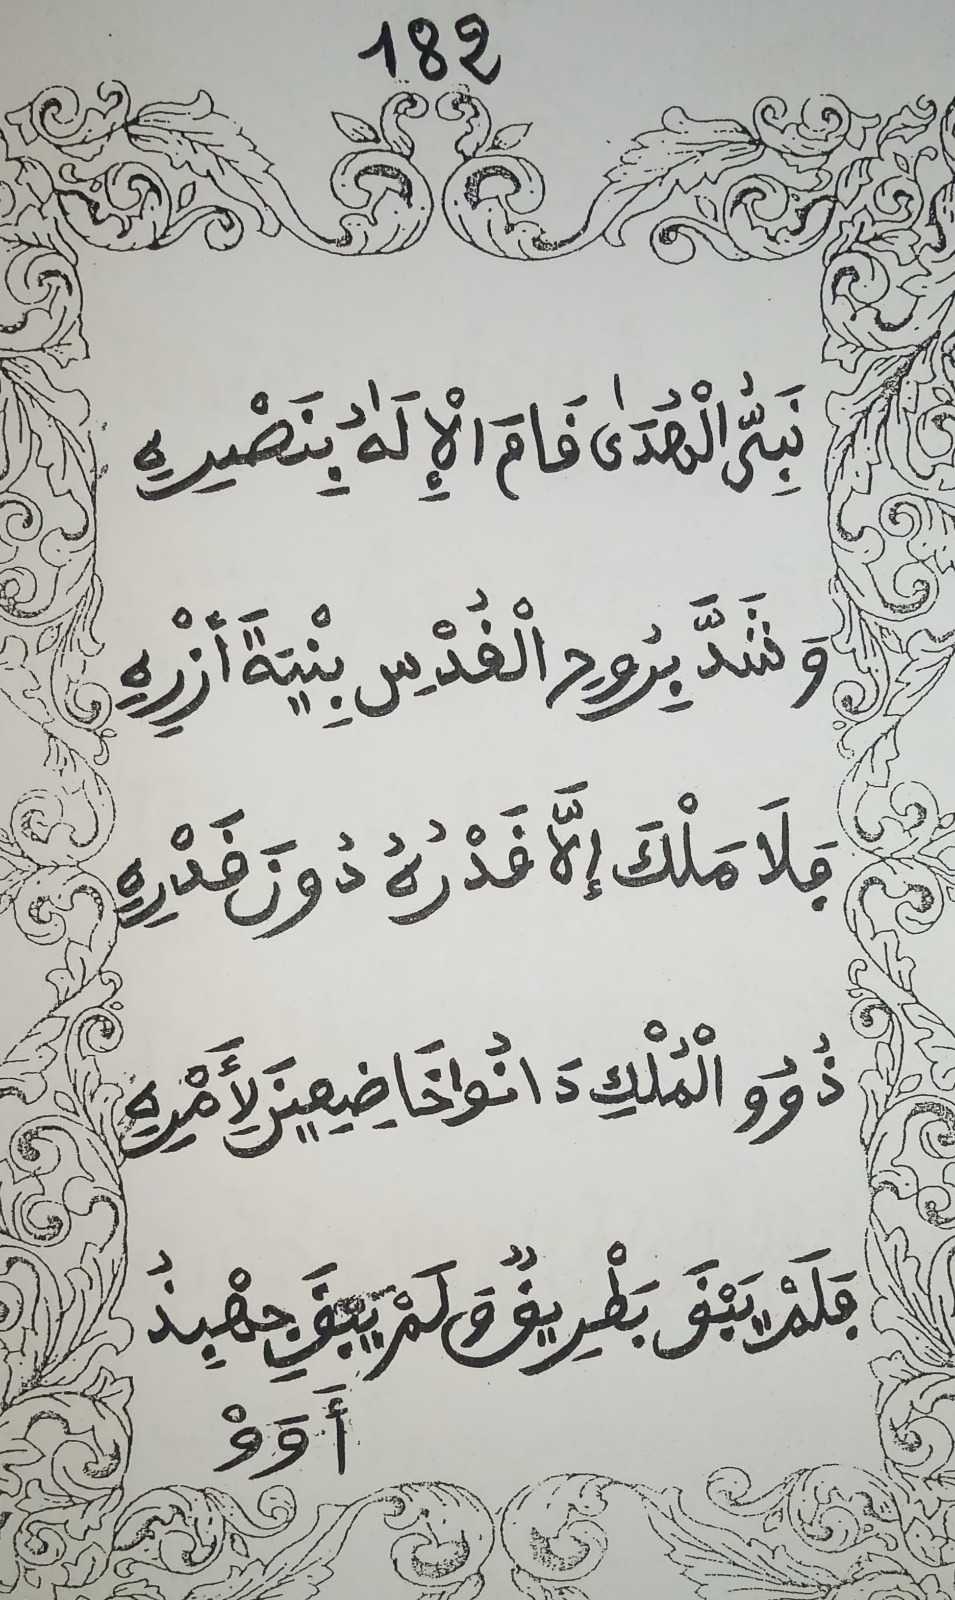 182
نَبِيُّ الْهُدَىٰ فَامَ الْإِلَٰهُ بِنَصْرِهِ
وَشَدَّ بِرُوحِ الْفُدْسِ بِنْيَةً أَزْرِهِ
فَلَا مَلْكَ إِلَّا فَدْرُهُ دُونَ فَدْرِهِ
ذُوُو الْمُلْكِ دَانُوا خَاضِعِينَ لِأَمْرِهِ
فَلَمْ يَبْقَ بَطْرِيقٌ وَلَمْ يَبْقَ جِهْبِذُ
أَوَوْ